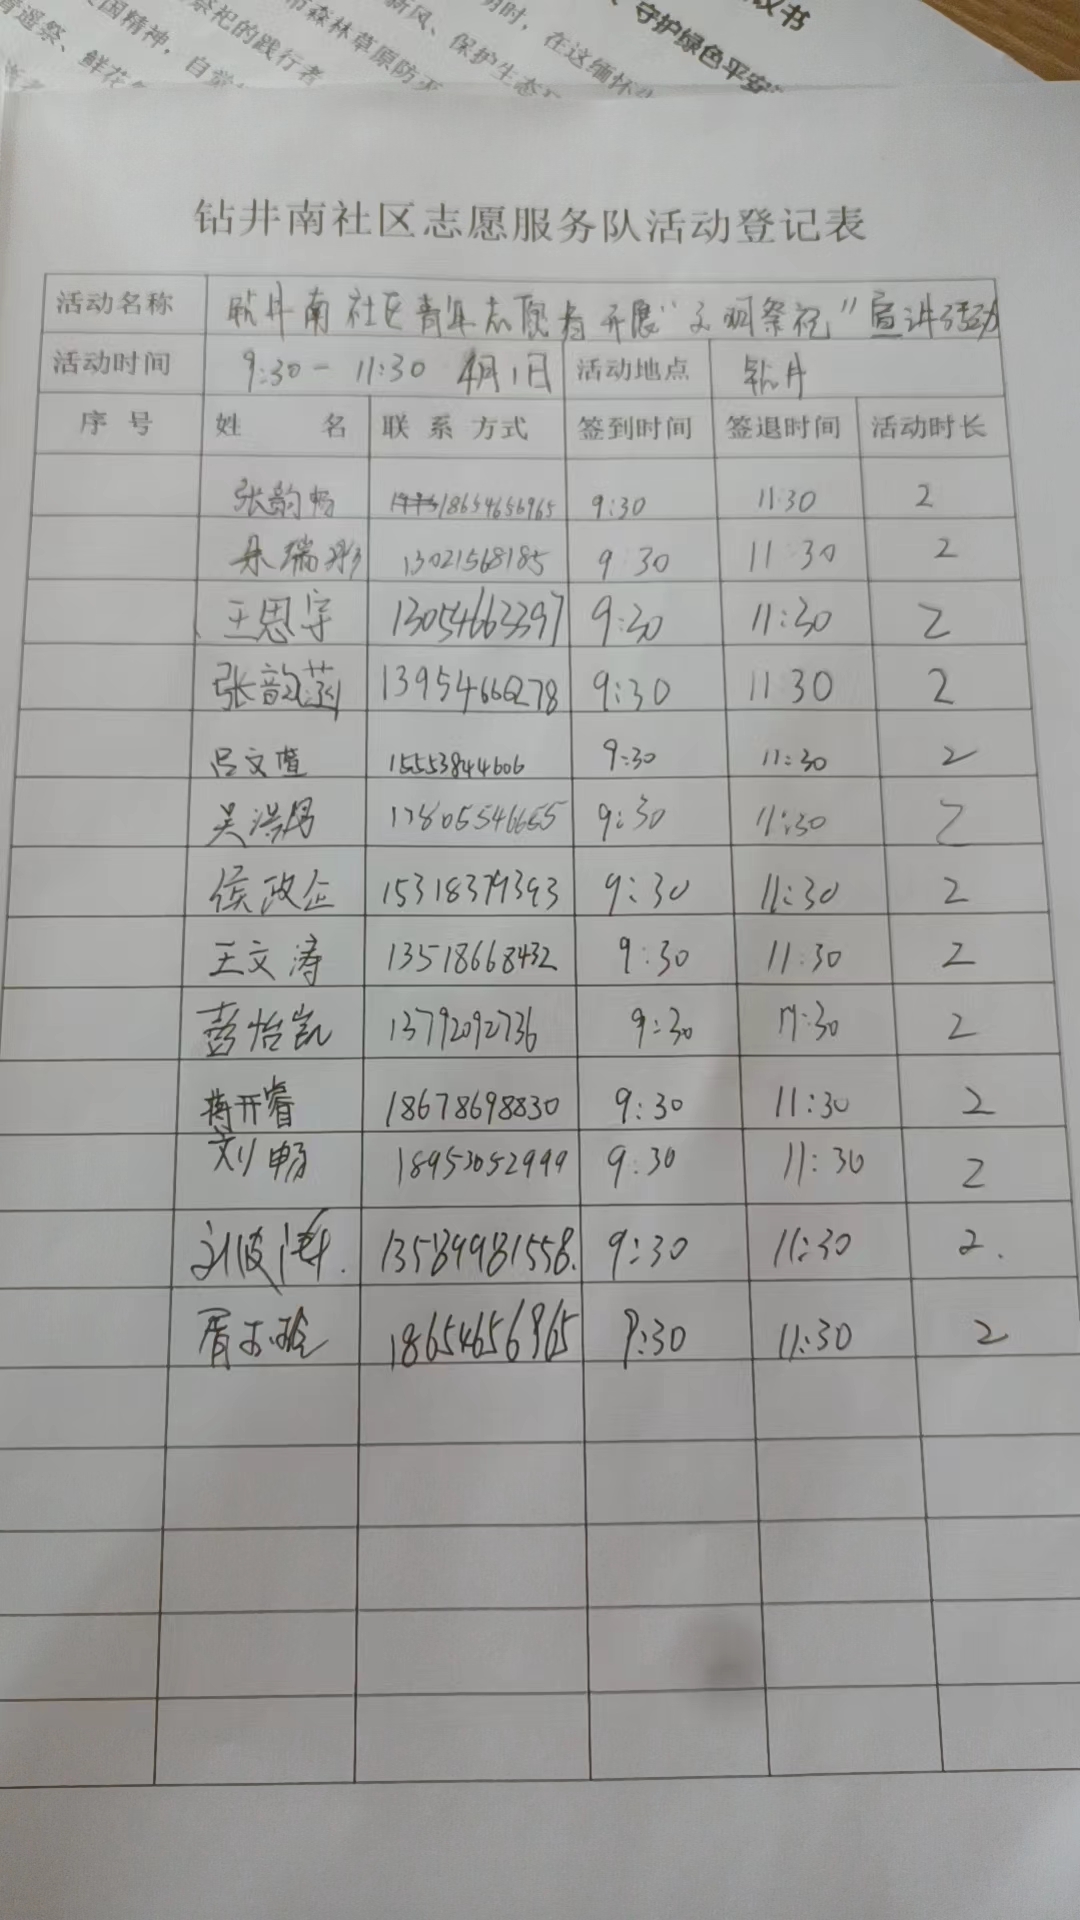 议书
守护绿色平安
钻井南社区志愿服务队活动登记表
活动名称 钻井南社区青年志愿者开展“文明祭祀”宣讲活动
活动时间 9:30-11:30 4月1日 活动地点 钻井
序号 姓名 联系方式 签到时间 签退时间 活动时长
张韵畅 18654656965 9:30 11:30 2
朱瑞彤 13021568185 9 30 11 30 2
王思宇 13054663397 9:30 11:30 2
张韵涵 13954666278 9:30 11 30 2
吕文萱 15553844606 9:30 11:30 2
吴洪 17805546655 9:30 11:30 2
侯政 15318379393 9:30 11:30 2
王文涛 13518668432 9:30 11:30 2
彭怡凯 13792092736 9:30 11:30 2
蒋开睿 18678698830 9:30 11:30 2
刘畅 18953052999 9:30 11:30 2
刘波涛. 13589981558. 9:30 11:30 2.
18654656965 9:30 11:30 2